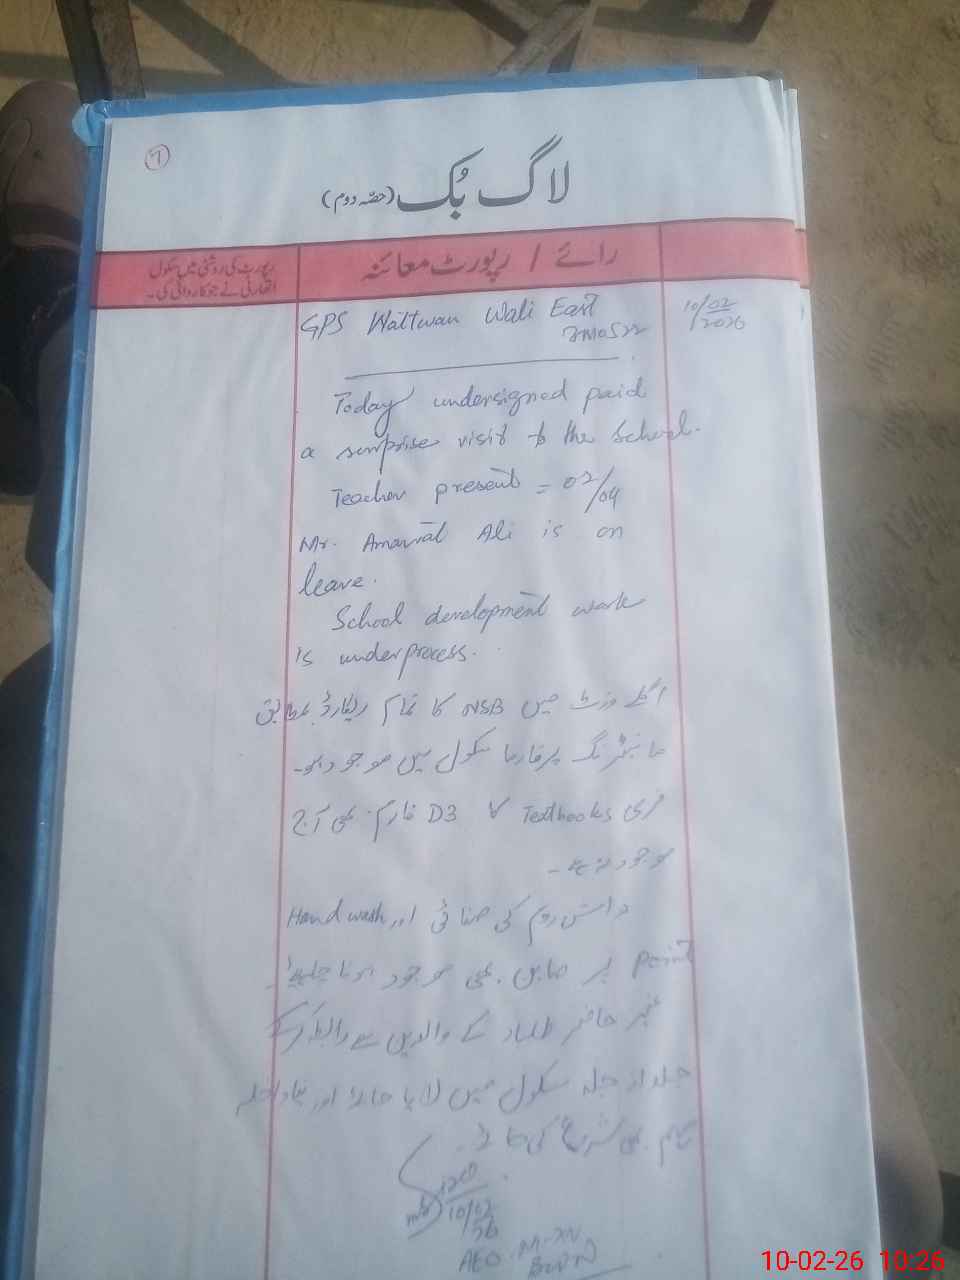 7
لاگ بُک (حصّہ دوم)
رائے / رپورٹ معائنہ
رپورٹ کی روشنی میں سکول
اتھارٹی نے جو کاروائی کی۔
GPS Wattwan Wali East
10/02/2026
Today undersigned paid
a surprise visit to the School.
Teacher present = 02/04
Mr. Amanat Ali is on
leave.
School development work
is underprocess.
اگلے وزٹ میں NSB کا تمام ریکارڈ بمطابق
مانیٹرنگ پرفارما سکول میں موجود ہو۔
فری Textbooks کا D3 فارم بھی آج
موجود نہ ہے۔
واش روم کی صفائی اور Hand wash
Point پر صابن بھی موجود ہونا چاہیے۔
غیر حاضر طلباء کے والدین سے رابطہ کر کے
جلد از جلد سکول میں لایا جائے اور نیا داخلہ
مہم بھی شروع کی جائے۔
10/02/26
AEO
10-02-26 10:26